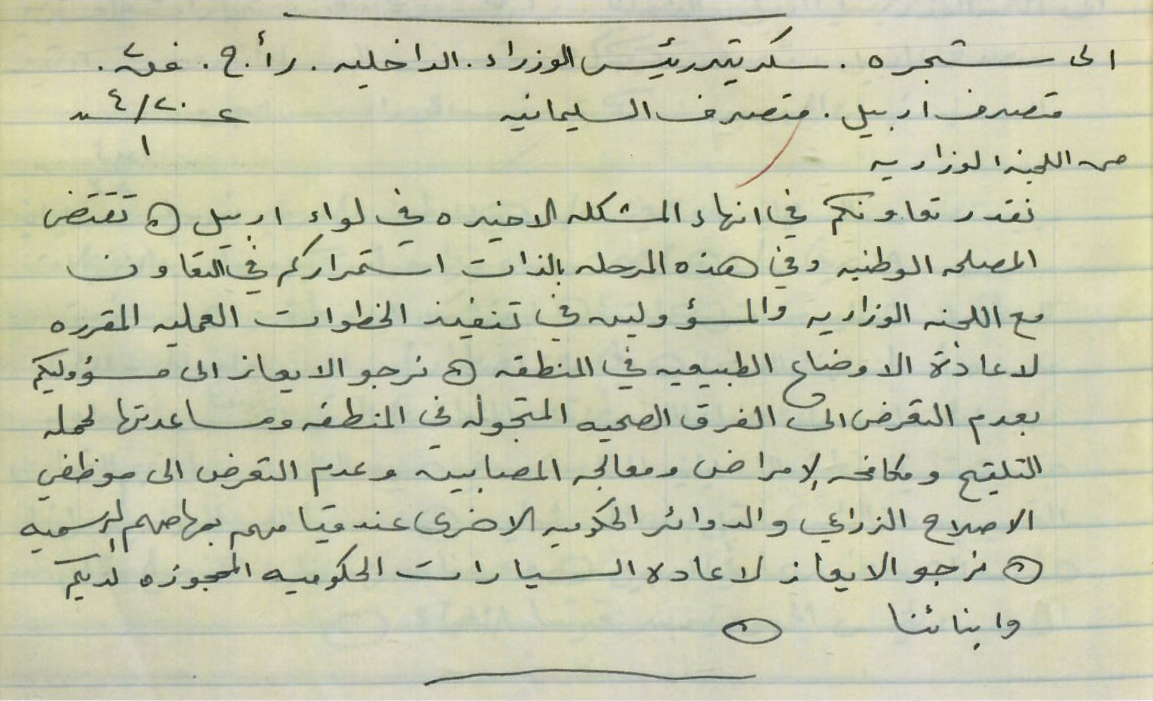 الى ستجره . سكرتير رئيس الوزراء . الداخليه . ر أ . ج .
متصرف اربيل . متصرف السليمانيه ٤/٢٠
١
من اللجنه الوزاريه
نقدر تعاونكم في انهاء المشكله الاخيره في لواء اربيل ه تقتضي
المصلحه الوطنيه وفي هذه المرحله بالذات استمراركم في التعاون
مع اللجنه الوزاريه والمسؤولين في تنفيذ الخطوات العمليه المقرره
لاعادة الاوضاع الطبيعيه في المنطقه ه نرجو الايعاز الى مسؤوليكم
بعدم التعرض الى الفرق الصحيه المتجوله في المنطقه ومساعدتها لحمله
التلقيح ومكافحه الامراض ومعالجه المصابين وعدم التعرض الى موظفي
الاصلاح الزراعي والدوائر الحكوميه الاخرى عند قيامهم بمهامهم الرسميه
ه نرجو الايعاز لاعاده السيارات الحكوميه المحجوزه لديكم
وابنائنا ه